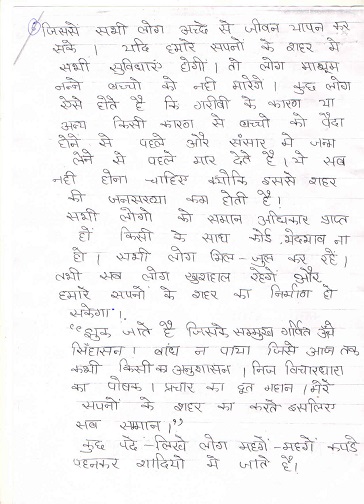 जिससे सभी लोग अच्छे से जीवन यापन कर
सके । यदि हमारे सपनो के शहर मे
सभी सुविधाएं होगी । तो लोग मासूम
नन्ने बच्चो को नही मारेगे । कुछ लोग
ऐसे होते है कि गरीबी के कारण या
अन्य किसी कारण से बच्चो को पैदा
होने से पहले और संसार मे जन्म
लेने से पहले मार देते है । ये सब
नही होना चाहिए क्योकि इससे शहर
की जनसंख्या कम होती है ।
सभी लोगो को समान अधिकार प्राप्त
हो किसी के साथ कोई भेदभाव ना
हो । सभी लोग मिल - जुल कर रहें ।
तभी सब लोग खुशहाल रहेगें और
हमारे सपनो के शहर का निर्माण हो
सकेगा ।
"झुक जाते है जिसके सम्मुख गर्वित ऊँचे
सिंहासन । बांध न पाया जिसे आज तक
कभी किसी का अनुशासन । निज विचारधारा
का पोषक । प्रचार का दूत महान । मेरे
सपनो के शहर का करते इसलिए
सब सम्मान ।"
कुछ पढे - लिखे लोग महगें - महगें कपडे
पहनकर शादियो मे जाते है ।